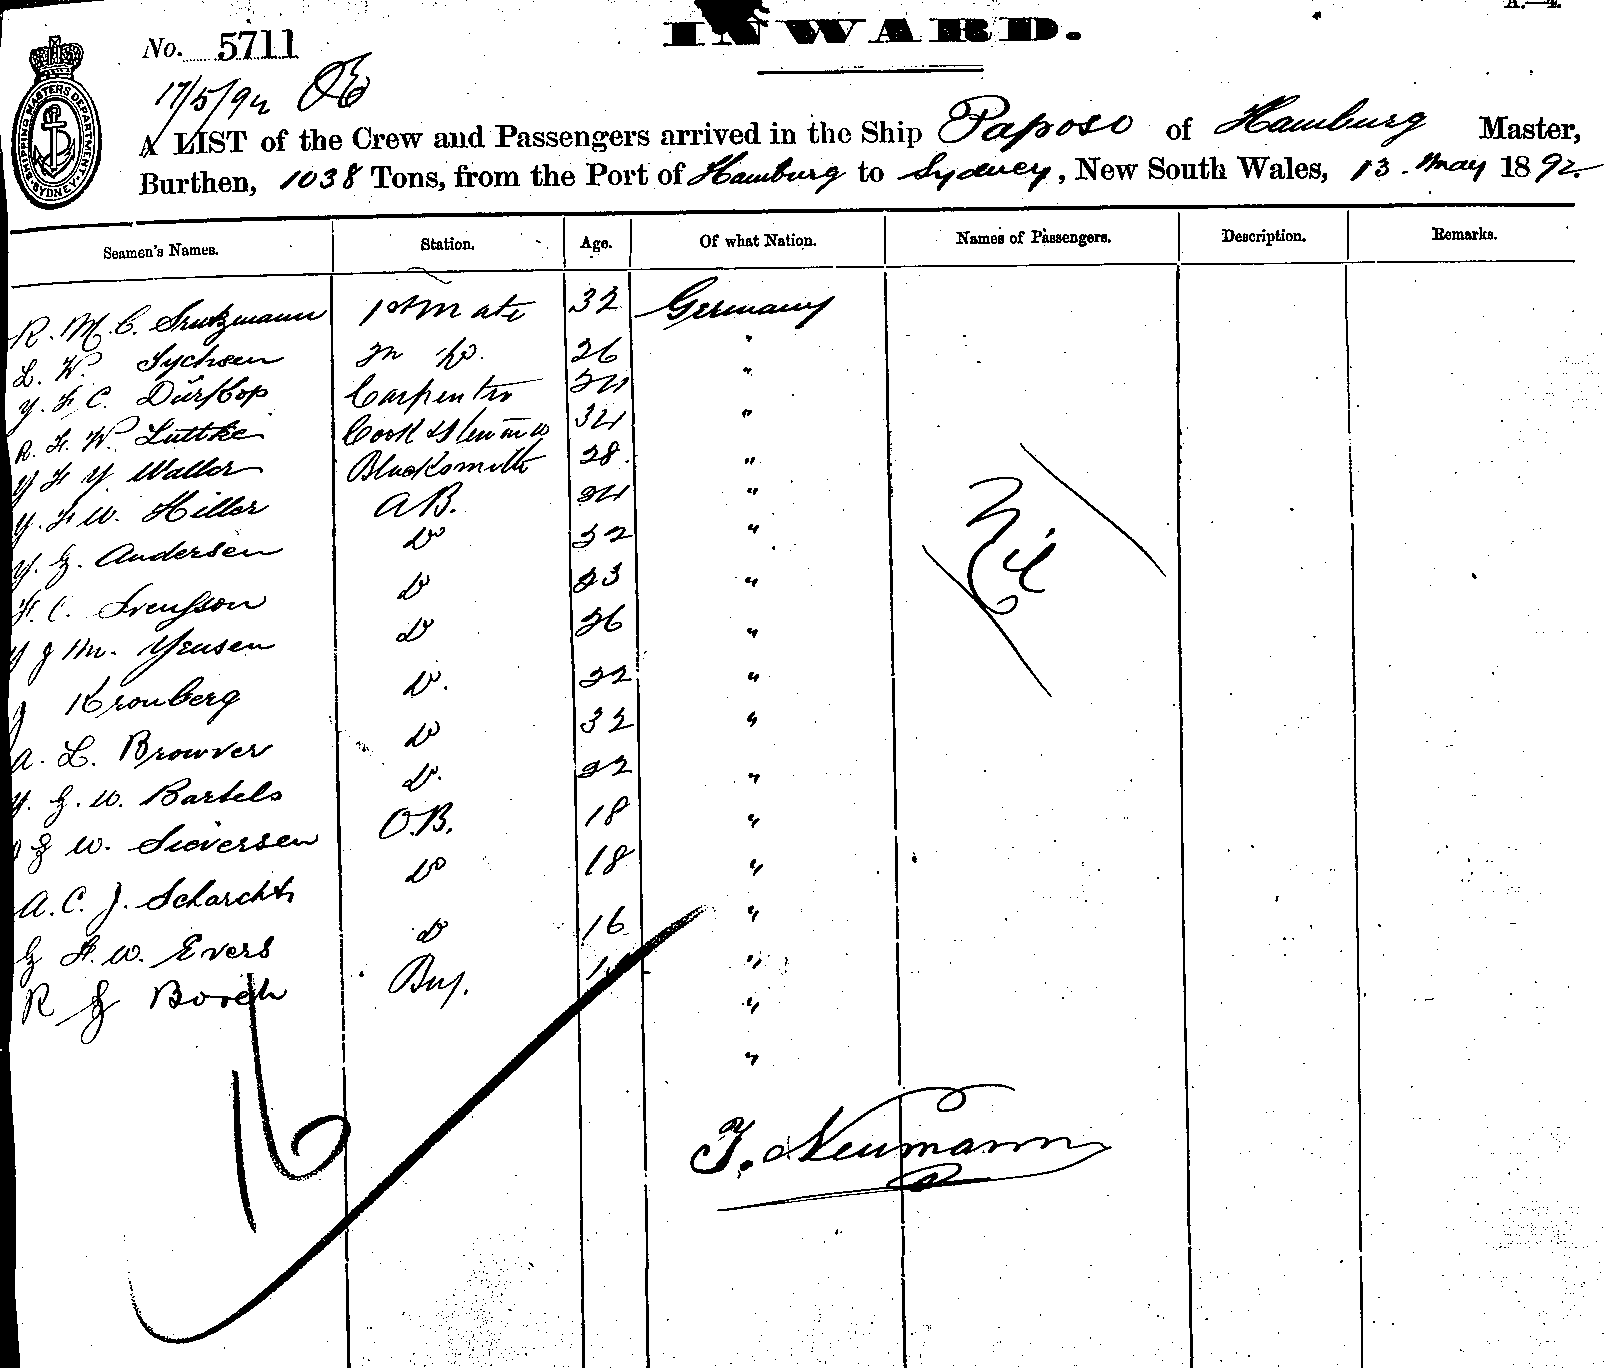 A.—4.
INWARD.
No. 5711
17/5/92
SHIPPING MASTERS DEPARTMENT SYDNEY
A LIST of the Crew and Passengers arrived in the Ship Paposo of Hamburg Master,
Burthen, 1038 Tons, from the Port of Hamburg to Sydney, New South Wales, 13 May 1892
Seamen's Names. Station. Age. Of what Nation. Names of Passengers. Description. Remarks.
R. M. C. 1st Mate 32 Germany
L. W. Tychsen 2n Do. 26 "
C. Dürkop Carpenter "
R. F. W. Luttke Cook & Steward 34 "
Waller Blacksmith 28 "
W. Hiller A.B. 24 "
Andersen Do 32 "
F. C. Svensson Do 23 "
M. Yensen Do 26 "
Kronberg Do. 22 "
A. L. Browver Do 32 "
W. Bartels Do. 22 "
W. Sieversen O.B. 18 "
A. C. J. Scharcht Do 18 "
F. W. Evers Do 16 "
R Boy. "
"
"
Nil
16
J. Neumann